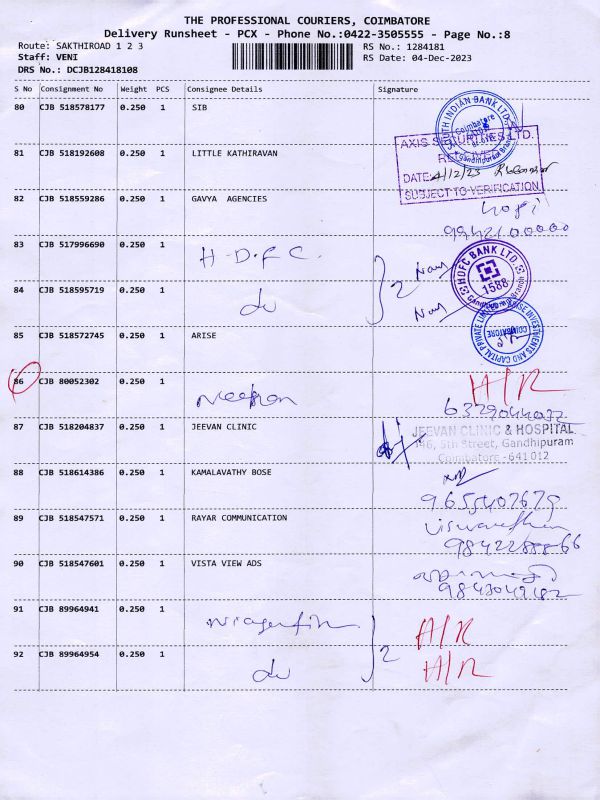 THE PROFESSIONAL COURIERS, COIMBATORE
Delivery Runsheet - PCX - Phone No.:0422-3505555 - Page No.:8
Route: SAKTHIROAD 1 2 3 RS No.: 1284181
Staff: VENI RS Date: 04-Dec-2023
DRS No.: DCJB128418108
S No Consignment No Weight PCS Consignee Details Signature
80 CJB 518578177 0.250 1 SIB
SOUTH INDIAN BANK LTD.
Coimbatore
Gandhipuram Branch
81 CJB 518192608 0.250 1 LITTLE KATHIRAVAN
AXIS SECURITIES LTD.
RECEIVED
DATE: 4/12/23
SUBJECT TO VERIFICATION
82 CJB 518559286 0.250 1 GAVYA AGENCIES
9942100000
83 CJB 517996690 0.250 1 H.D.F.C.
HDFC BANK LTD.
1588
Gandhipuram Branch
84 CJB 518595719 0.250 1 do 2
85 CJB 518572745 0.250 1 ARISE
ARISE INVESTMENTS AND CAPITAL PRIVATE LIMITED
COIMBATORE
86 CJB 80052302 0.250 1 A/R
87 CJB 518204837 0.250 1 JEEVAN CLINIC
JEEVAN CLINIC & HOSPITAL
5th Street, Gandhipuram
Coimbatore - 641 012
88 CJB 518614386 0.250 1 KAMALAVATHY BOSE
89 CJB 518547571 0.250 1 RAYAR COMMUNICATION
90 CJB 518547601 0.250 1 VISTA VIEW ADS
91 CJB 89964941 0.250 1 A/R
92 CJB 89964954 0.250 1 do 2 A/R